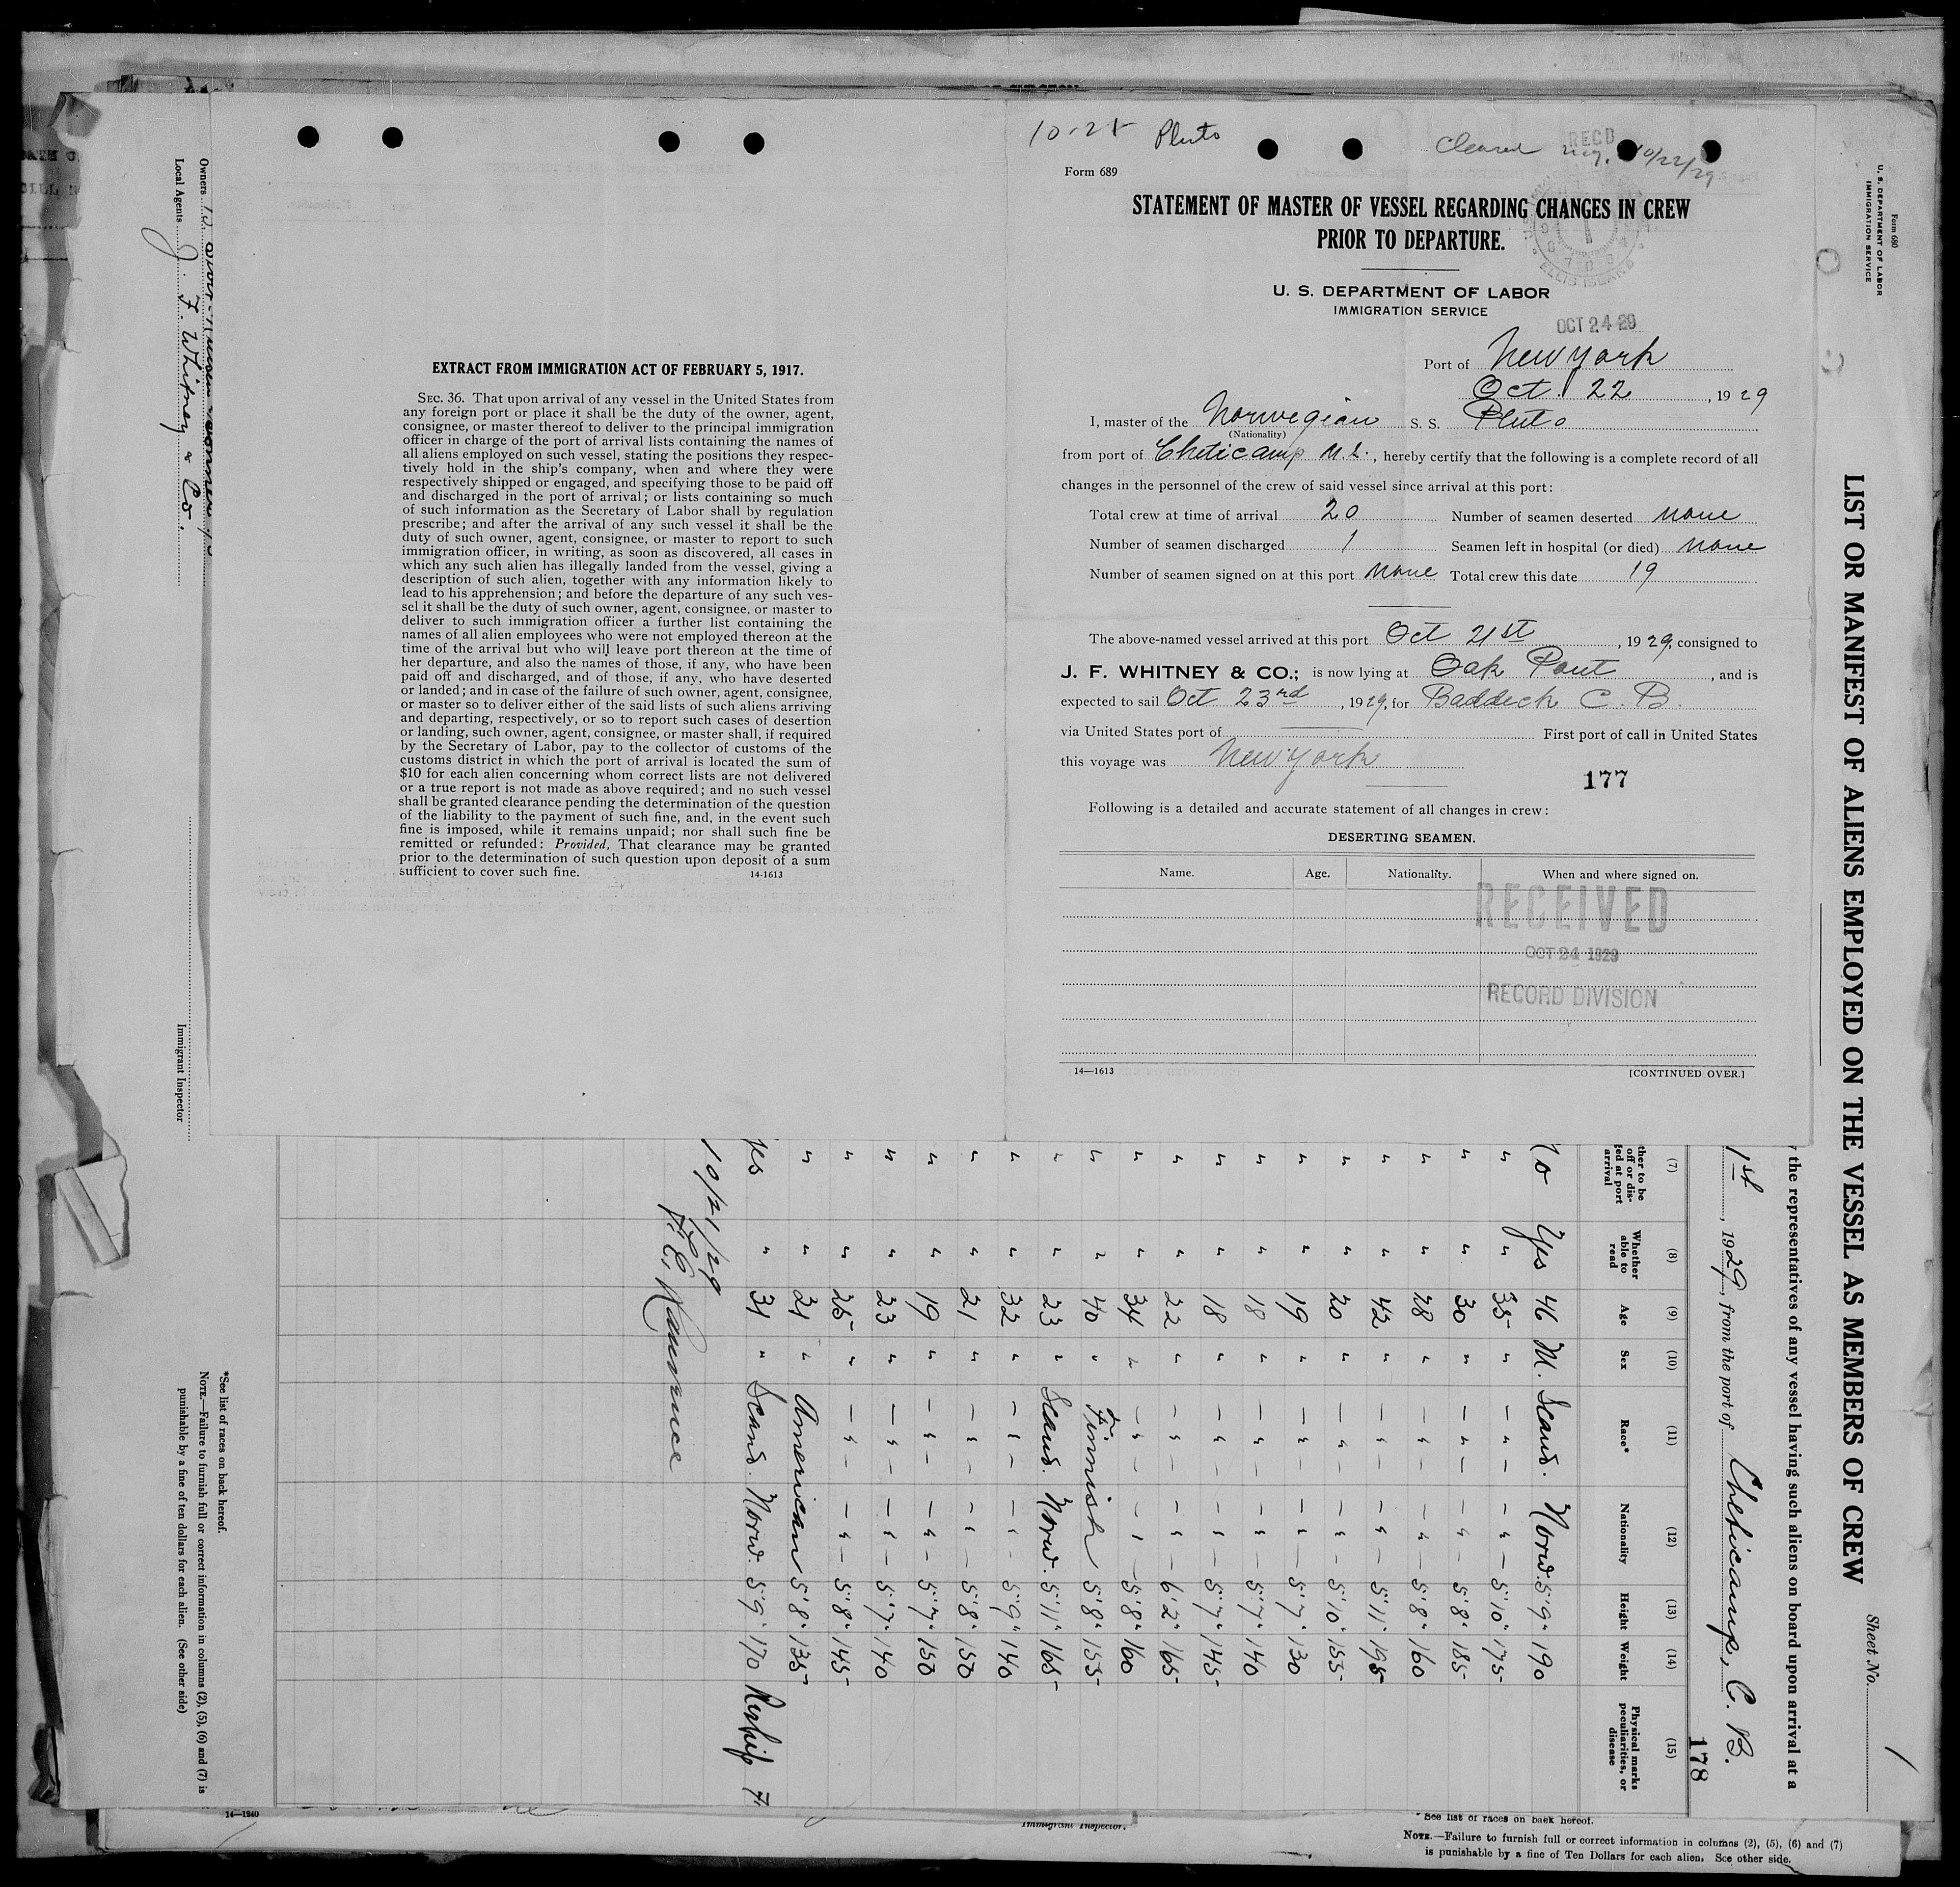 10-25 Pluto
Cleared
10/22/29
RECD
Form 689
STATEMENT OF MASTER OF VESSEL REGARDING CHANGES IN CREW
PRIOR TO DEPARTURE.
ELLIS ISLAND
U. S. DEPARTMENT OF LABOR
IMMIGRATION SERVICE
OCT 24 29
Port of New York
Oct. 22, 1929
I, master of the Norwegian S. S. Pluto
(Nationality)
from port of Cheticamp N.S., hereby certify that the following is a complete record of all
changes in the personnel of the crew of said vessel since arrival at this port:
Total crew at time of arrival 20 Number of seamen deserted None
Number of seamen discharged 1 Seamen left in hospital (or died) None
Number of seamen signed on at this port None Total crew this date 19
The above-named vessel arrived at this port Oct 21st, 1929, consigned to
J. F. WHITNEY & CO.; is now lying at Oak Point, and is
expected to sail Oct 23rd, 1929, for Baddeck C. B.
via United States port of First port of call in United States
this voyage was New York
177
Following is a detailed and accurate statement of all changes in crew:
DESERTING SEAMEN.
Name. Age. Nationality. When and where signed on.
RECEIVED
OCT 24 1929
RECORD DIVISION
14—1613 [CONTINUED OVER.]
EXTRACT FROM IMMIGRATION ACT OF FEBRUARY 5, 1917.
SEC. 36. That upon arrival of any vessel in the United States from
any foreign port or place it shall be the duty of the owner, agent,
consignee, or master thereof to deliver to the principal immigration
officer in charge of the port of arrival lists containing the names of
all aliens employed on such vessel, stating the positions they respec-
tively hold in the ship's company, when and where they were
respectively shipped or engaged, and specifying those to be paid off
and discharged in the port of arrival; or lists containing so much
of such information as the Secretary of Labor shall by regulation
prescribe; and after the arrival of any such vessel it shall be the
duty of such owner, agent, consignee, or master to report to such
immigration officer, in writing, as soon as discovered, all cases in
which any such alien has illegally landed from the vessel, giving a
description of such alien, together with any information likely to
lead to his apprehension; and before the departure of any such ves-
sel it shall be the duty of such owner, agent, consignee, or master to
deliver to such immigration officer a further list containing the
names of all alien employees who were not employed thereon at the
time of the arrival but who will leave port thereon at the time of
her departure, and also the names of those, if any, who have been
paid off and discharged, and of those, if any, who have deserted
or landed; and in case of the failure of such owner, agent, consignee,
or master so to deliver either of the said lists of such aliens arriving
and departing, respectively, or so to report such cases of desertion
or landing, such owner, agent, consignee, or master shall, if required
by the Secretary of Labor, pay to the collector of customs of the
customs district in which the port of arrival is located the sum of
$10 for each alien concerning whom correct lists are not delivered
or a true report is not made as above required; and no such vessel
shall be granted clearance pending the determination of the question
of the liability to the payment of such fine, and, in the event such
fine is imposed, while it remains unpaid; nor shall such fine be
remitted or refunded: Provided, That clearance may be granted
prior to the determination of such question upon deposit of a sum
sufficient to cover such fine. 14-1613
Form 680
U. S. DEPARTMENT OF LABOR
IMMIGRATION SERVICE
LIST OR MANIFEST OF ALIENS EMPLOYED ON THE VESSEL AS MEMBERS OF CREW
Sheet No. 1
the representatives of any vessel having such aliens on board upon arrival at a
1st, 1929, from the port of Cheticamp, C. B.
178
(7) (8) (9) (10) (11) (12) (13) (14) (15)
ther to be off or dis- ged at port arrival Whether able to read Age Sex Race* Nationality Height Weight Physical marks peculiarities, or disease
No Yes 46 M. Scand. Norw. 5'9" 190
" " 35 " — " — — " — 5'10" 175
" " 30 " — " — — " — 5'8" 185
" " 28 " — " — — " — 5'8" 160
" " 42 " — " — — " — 5'11" 195
" " 20 " — " — — " — 5'10" 155
" " 19 " — " — — " — 5'7" 130
" " 18 " — " — — " — 5'7" 140
" " 18 " — " — — " — 5'7" 145
" " 22 " — " — — " — 6'2" 165
" " 34 " — " — — " — 5'8" 160
" " 40 " Finnish 5'8" 155
" " 23 " Scand. Norw. 5'11" 165
" " 32 " — " — — " — 5'9" 140
" " 21 " — " — — " — 5'8" 150
" " 19 " — " — — " — 5'7" 150
" " 23 " — " — — " — 5'7" 140
" " 25 " — " — — " — 5'8" 145
" " 21 " American 5'8" 135
Yes " 31 " Scand. Norw. 5'9" 170 Reship 7.
10/21/29
Owners
Local Agents J. F. Whitney & Co.
Immigrant Inspector
*See list of races on back hereof.
NOTE.—Failure to furnish full or correct information in columns (2), (5), (6) and (7) is
punishable by a fine of ten dollars for each alien. (See other side)
14—1240
Immigrant Inspector.
*See list of races on back hereof.
NOTE.—Failure to furnish full or correct information in columns (2), (5), (6) and (7)
is punishable by a fine of Ten Dollars for each alien. See other side.